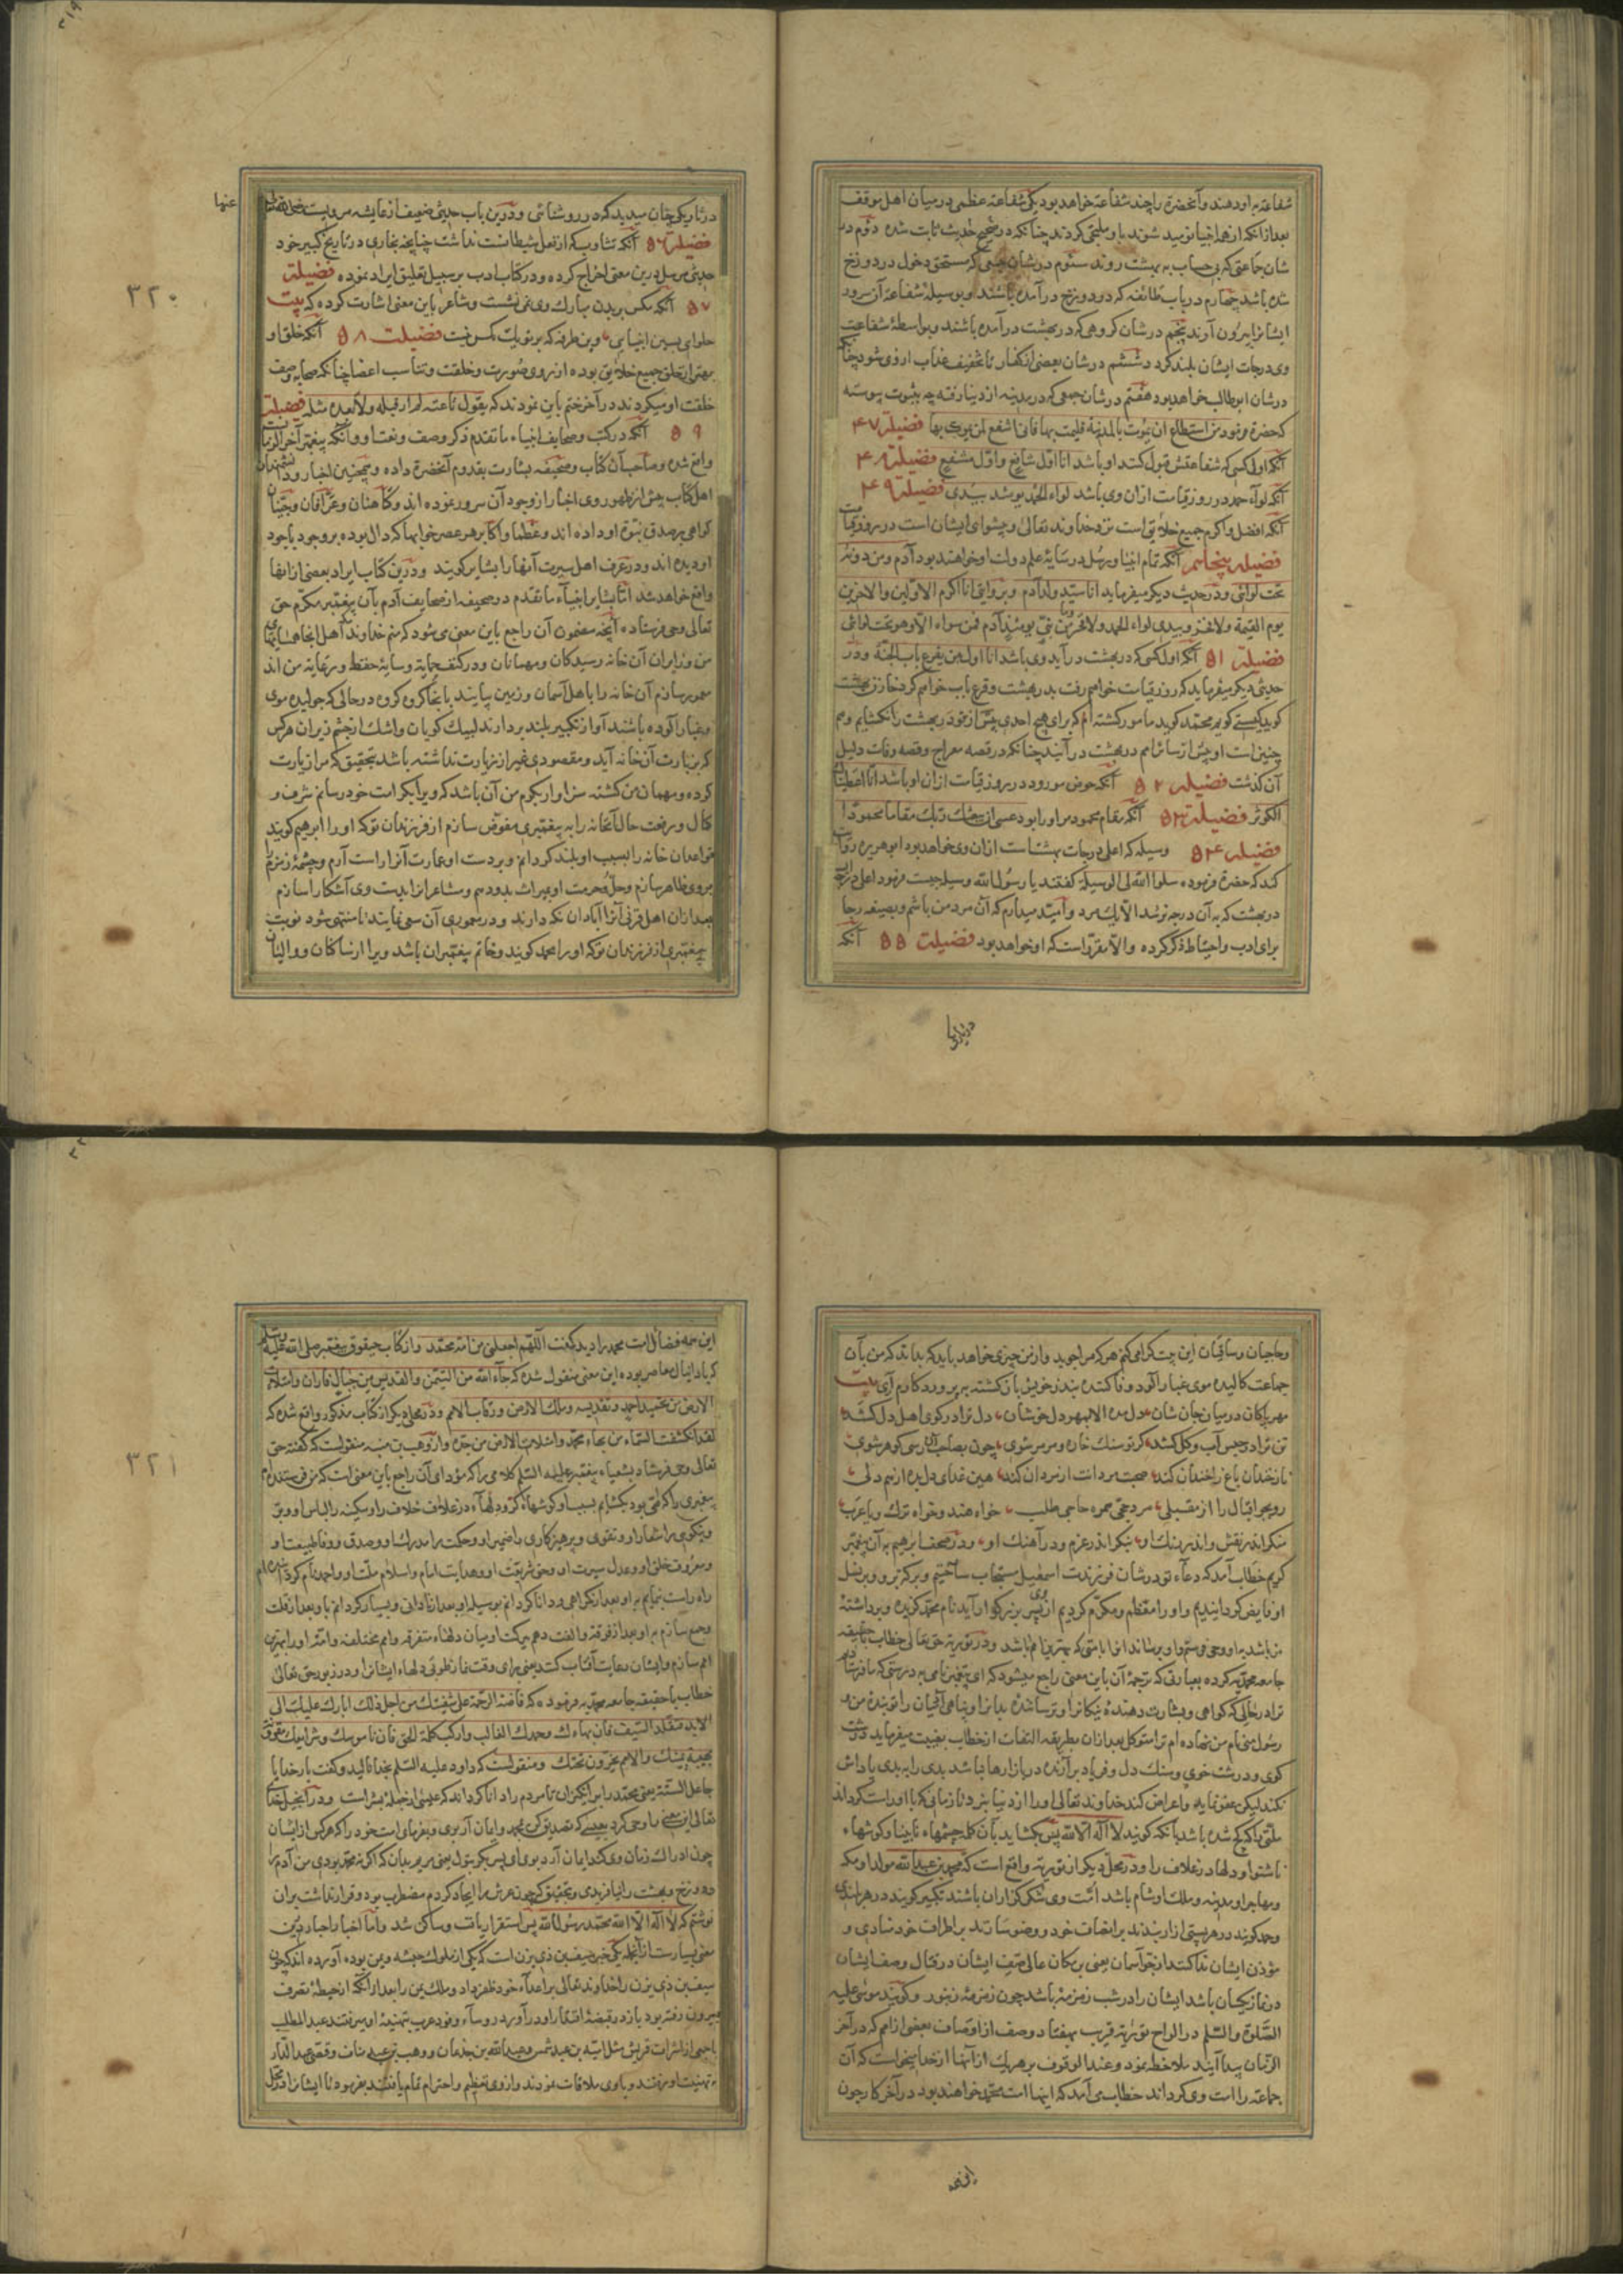 شفاعة براو دهند و آنحضرة را چند شفاعة خواهد بود یکی شفاعة عظمی درمیان اهل موقف
بعد از آنکه از همه انبیا نومید شوند باو ملتجی کردند چنانکه در صحیح حدیث ثابت شده دوم در
شان جماعتی که بی حساب به بهشت روند سئوم در شان جمعی که مستحق دخول در دوزخ
شده باشد چهارم در باب طائفه که در دوزخ درآمده باشند و بوسیلهٔ شفاعة آن سرور
ایشانرا بیرون آورند پنجم در شان کروهی که در بهشت درآمده باشند و بواسطهٔ شفاعت
وی درجات ایشان بلند کردد ششم در شان بعضی از کفار تا تخفیف عذاب ازوی شود چنانکه
در شان ابوطالب خواهد بود هفتم در شان جمعی که در مدینه از دنیا رفته چه بثبوت پیوسته
که حضرة فرمود من استطاع ان یموت بالمدینة فلیمت بها فانی اشفع لمن یموت بها فضیلة ۴۷
آنکه اول کسی که شفاعتش قبول کنند او باشد انا اول شافع و اول مشفع فضیلة ۴۸
آنکه لواء حمد در روز قیامت از ان وی باشد لواء الحمد یومئذ بیدی فضیلة ۴۹
آنکه افضل و اکرم جمیع خلایق است نزد خداوند تعالی و پیشوای ایشان است در روز قیامت
فضیلة پنجاهم آنکه تمام انبیا و رسل در سایهٔ علم دولت او خواهند بود آدم ومن دونه
تحت لوائی ودر حدیث دیکر میفرماید انا سید ولد آدم وبروایتی انا اکرم الاولین والاخرین
یوم القیمة ولافخر وبیدی لواء الحمد ولافخر وما من نبی یومئذ آدم فمن سواه الا وهو تحت لوائی
فضیلة ۵۱ آنکه اول کسی که در بهشت درآید وی باشد انا اول من یقرع باب الجنة ودر
حدیثی دیکر میفرماید که روز قیامت خواهم رفت بدر بهشت وقرع باب خواهم کرد خازن بهشت
کوید کیستی کویم محمد کوید مامور کشته ام که برای هیچ احدی پیش از تو در بهشت را نکشایم وهم
چنین امت او پیش از سائر امم در بهشت درآیند چنانکه در قصه معراج وقصه وفات دلیل
آن کذشت فضیلة ۵۲ آنکه حوض مورود در روز قیامت از ان او باشد انا اعطیناک
الکوثر فضیلة ۵۳ آنکه مقام محمود مر اورا بود عسی ان یبعثک ربک مقاما محمودا
فضیلة ۵۴ وسیله که اعلی درجات بهشت است ازان وی خواهد بود ابو هریره روایت
کند که حضرة فرموده سلوا الله لی الوسیلة کفتند یا رسول الله وسیله چیست فرمود اعلی درجه ایست
در بهشت که به آن درجه نرسد الا یک مرد وامید میدارم که آن مرد من باشم وبصیغه رجا
برای ادب واحتیاط ذکر کرده والا مقرر است که او خواهد بود فضیلت ۵۵ آنکه
در تاریکی
۳۱۹
۳۲۰
در تاریکی چنان میدید که در روشنائی ودرین باب حدیثی ضعیف از عایشه مرویست رضی الله
عنها
فضیلة ۵۶ آنکه تثاوب که از فعل شیطانست نداشت چنانچه بخاری در تاریخ کبیر خود
حدیثی مرسل درین معنی اخراج کرده ودر کتاب ادب بر سبیل تعلیق ایراد نموده فضیلة
۵۷ آنکه مکس بر بدن مبارک وی نمی نشست وشاعر باین معنی اشارت کرده که بیت
حلوای پسین انبیایی وین طرفه که بر تو یک مکس نیست فضیلت ۵۸ آنکه خلق او
بهترین خلق جمیع خلایق بوده از روی صورت وخلقت وتناسب اعضا چنانکه صحابه وصف
خلقت او میکردند در آخر ختم باین نمودند که یقول ناعته لم ار قبله ولابعده مثله فضیلت
۵۹ آنکه در کتب وصحایف انبیاء ما تقدم ذکر وصف ونعت او وآنکه پیغمبر آخر الزمانست
واقع شده وصاحب آن کتاب وصحیفه بشارت بقدوم آنحضرة داده وهمچنین اخبار ودانشمندان
اهل کتاب پیش از ظهور وی اخبار از وجود آن سرور نموده اند وکاهنان وعرافان وجنیان
کواهی بر صدق نبوة او داده اند وعظما واکابر هر عصر خوابها که دال بوده بر وجود باجود
او دیده اند ودر عرف اهل سیرت آنها را بشایر کویند ودرین کتاب ایراد بعضی از انها
واقع خواهد شد اما بشایر انبیاء ما تقدم در صحیفه از صحایف آدم بآن پیغمبر مکرم حق
تعالی وحی فرستاده آنچه مضمون آن راجع باین معنی می شود که منم خداوند مکه اهل انجا همسایهای
من وزایران آن خانه رسیدکان ومهمانان ودر کنف حمایه وسایهٔ حفظ ورعایهٔ من اند
معمور سازم آن خانه را باهل آسمان وزمین بیایند بانجا کروه کروه در حالی که جولیده موی
وغبار آلوده باشند آواز تکبیر بلند بردارند لبیک کویان واشک از چشم ریزان هر کس
که بزیارت آن خانه آید ومقصودی غیر از زیارت نداشته باشد بتحقیق که مرا زیارت
کرده ومهمان من کشته سزاوار بکرم من آن باشد که ویرا بکرامت خود رسانم شرف و
کمال ورفعت حال آنخانه را به پیغمبری مفوض سازم از فرزندان تو که اورا ابرهیم کویند
قواعد ان خانه را بسبب او بلند کردانم وبر دست او عمارت آنرا راست آرم وچشمهٔ زمزم
بروی ظاهر سازم وحل وحرمت او بمیراث بدو دهم ومشاعر آنرا بدست وی آشکارا سازم
بعد ازان اهل قرنی آنرا آبادان نکه دارند ودر معموری آن سعی نمایند تا منتهی شود نوبت
پیغمبری از فرزندان تو که اورا محمد کویند وخاتم پیغمبران باشد ویرا از ساکنان ووالیان
وحاجبان وساقیان این بیت کرامی کنم هر که مرا جوید واز من چیزی خواهد باید که بداند که من بآن
جماعت کالیده موی غبار آلود وفا کننده بنذر خویش باز کشته به پروردکارم آری بیت
مهر پاکان در میان جان نشان دل مده الا بمهر دل خوشان دل ترا در کوی اهل دل کشد
تن ترا در حبس آب وکل کشد کر تو سنک خاره ومرمر شوی چون بصاحب دل رسی کوهر شوی
نار خندان باغ را خندان کند صحبت مردانت از مردان کند هین غذای دل بده از هم دلی
رو بجو اقبال را از مقبلی مرد حجی همره حاجی طلب خواه هند وخواه ترک ویا عرب
منکر اندر نقش واندر رنک او بنکر اندر عزم ودر آهنک او ودر صحف ابرهیم به آن پیغمبر
کریم خطاب آمد که دعاء تو در شان فرزندت اسمعیل مستجاب ساختیم وبرکه برو وبر نسل
او فایض کردانیدیم واورا معظم ومکرم کردیم از وی پسر بزرکوار آید نام محمد کزیده وبرداشتهٔ
من باشد باو وحی فرستم واو برساند انرا بامتی که بهترین امم باشد ودر توریة حق تعالی خطاب باحقیقه
جامعه محمدیه کرده بعبارتی که ترجمهٔ آن باین معنی راجع میشود که ای پیغمبر نامی به درستی که ما فرستادیم
ترا در حالی که کواهی وبشارت دهندهٔ نیکانرا وترسانندهٔ بدانرا وپناهی امیان را تو بندهٔ من و
رسول منی نام من نهاده ام ترا متوکل بعد ازان بطریقه التفات از خطاب بغیبت میفرماید درشت
کوی ودرشت خوی وسنک دل وفریاد برآرنده در بازارها نباشد بدی را به بدی پاداش
نکند لیکن عفو نماید واعراض کند خداوند تعالی اورا از دنیا نبرد تا زمانی که باو راست کرداند
ملتی را که کج شده باشد بآنکه کویند لا اله الا الله پس بکشاید بآن کلمه چشمهاء نابینا وکوشهاء
ناشنوا ودلها در غلاف را ودر محل دیکر از توریة واقع است که محمد بن عبد الله مولد او مکه
ومهاجر او مدینه وملک او شام باشد امت وی شکر کزاران باشند تکبیر کویند در هر بلندی
وحمد کویند در هر پستی ازار بندند بر انصاف خود ووضو سازند بر اطراف خود منادی و
مؤذن ایشان ندا کند از جو آسمان یعنی بر مکان عالی صف ایشان در قتال وصف ایشان
در نماز یکسان باشد ایشان را در شب زمزمهٔ باشد چون زمزمهٔ زنبور وکویند موسی علیه
الصلوة والسلم در الواح توریة قریب بهفتاد وصف از اوصاف بعضی از امم که در آخر
الزمان پیدا آیند ملاحظه نمود وعند الوقوف بر هر یک از آنها از خدا میخواست که آن
جماعة را امت وی کرداند خطاب می آمد که اینها امت محمد خواهند بود در آخر کار چون
این همه
۳۲۱
این همه فضائل امت محمد را دید کفت اللهم اجعلنی من امة محمد واز کتاب حیقوق پیغمبر صلی الله علیه وسلم
که با دانیال معاصر بوده این معنی منقول شده که جاء الله من التیمن والقدس من جبال فاران وامتلاء
الارض من تحمید احمد وتقدیسه وملک الارض ورقاب الامم ودر محل دیکر از کتاب مذکور واقع شده که
لقد انکشفت السماء من بهاء محمد وامتلات الارض من حمده واز وهب بن منبه منقولست که کفته حق
تعالی وحی فرستاد بشعیاء پیغمبر علیه السلم کلامی را که مؤدای آن راجع باین معنی است که من فرستنده ام
پیغمبری را که امی بود بکشایم بسبب او کوشهاء کر ودلهاء در غلاف خلاف را وسکینه را لباس او وبر
ونیکوی را شعار او وتقوی وپرهیزکاری را ضمیر او وحکمت را مدرک او وصدق ووفا طبیعت او
ومعروف خلق او وعدل سیرت او وحق شریعت او وهدایت امام واسلام ملت او واحمد نام کردم
راه راست نمایم به او بعد از کمراهی ودانا کردانم بوسیله او بعد از نادانی وبسیار کردانم باو بعد از قلت
وجمع سازم به او بعد از فرقة والفت دهم ببرکت او میان دلهاء متفرقه وامم مختلفه وامت اورا بهترین
امم سازم وایشان رعایت آفتاب کنند یعنی برای وقت نماز طوبی دلهاء ایشانرا ودر زبور حق تعالی
خطاب با حقیقه جامعه محمدیه فرموده که فاضت الرحمة علی شفتیک من اجل ذلک ابارک علیک الی
الابد متقلد السیف فان بهاءک وحمدک الغالب وارکب کلمة الحق فان ناموسک وشرایعک مقرونة
بهیبة یمینک والامم یخرون تحتک ومنقولست که داود علیه السلم بخدا نالید وکفت بار خدایا
جاعل السنة یعنی محمد را برانکیزان تا مردم را دانا کرداند که عیسی از جملهٔ بشر است ودر انجیل خدای
تعالی این معنی را وحی کرد بعیسی که تصدیق کن بمحمد وایمان آر بوی وبفرمای امت خود را که هر کس از ایشان
چون ادراک زمان وی کند ایمان آرد بوی ای پسر بکر بتول یعنی مریم بدان که اکر نه محمد بودی من آدم را
ودوزخ وبهشت را نیافریدی وبتحقیق که چون عرش را ایجاد کردم مضطرب بود وقرار نداشت بران
نوشتم که لا اله الا الله محمد رسول الله پس استقرار یافت وساکن شد واما اخبار احبار درین
معنی بسیارست از آنجمله یکی خبر سیف بن ذی یزن است که یکی از ملوک حبشه ویمن بوده آورده اند که چون
سیف بن ذی یزن را خداوند تعالی بر اعداء خود ظفر داد وملک یمن را بعد از آنکه از حیطهٔ تصرف
بیرون رفته بود باز در قبضهٔ اقتدار او درآورد روسآء وفود عرب بتهنیهٔ او میرفتند عبد المطلب
با جمعی از اشراف قریش مثل امیة بن عبد شمس وعبد الله بن جذعان ووهب بن عبد مناف وقصی بن عبد الدار
بتهنیت او رفتند وباوی ملاقات نمودند واز وی تعظیم واحترام تمام یافتند بفرمود تا ایشانرا در محل